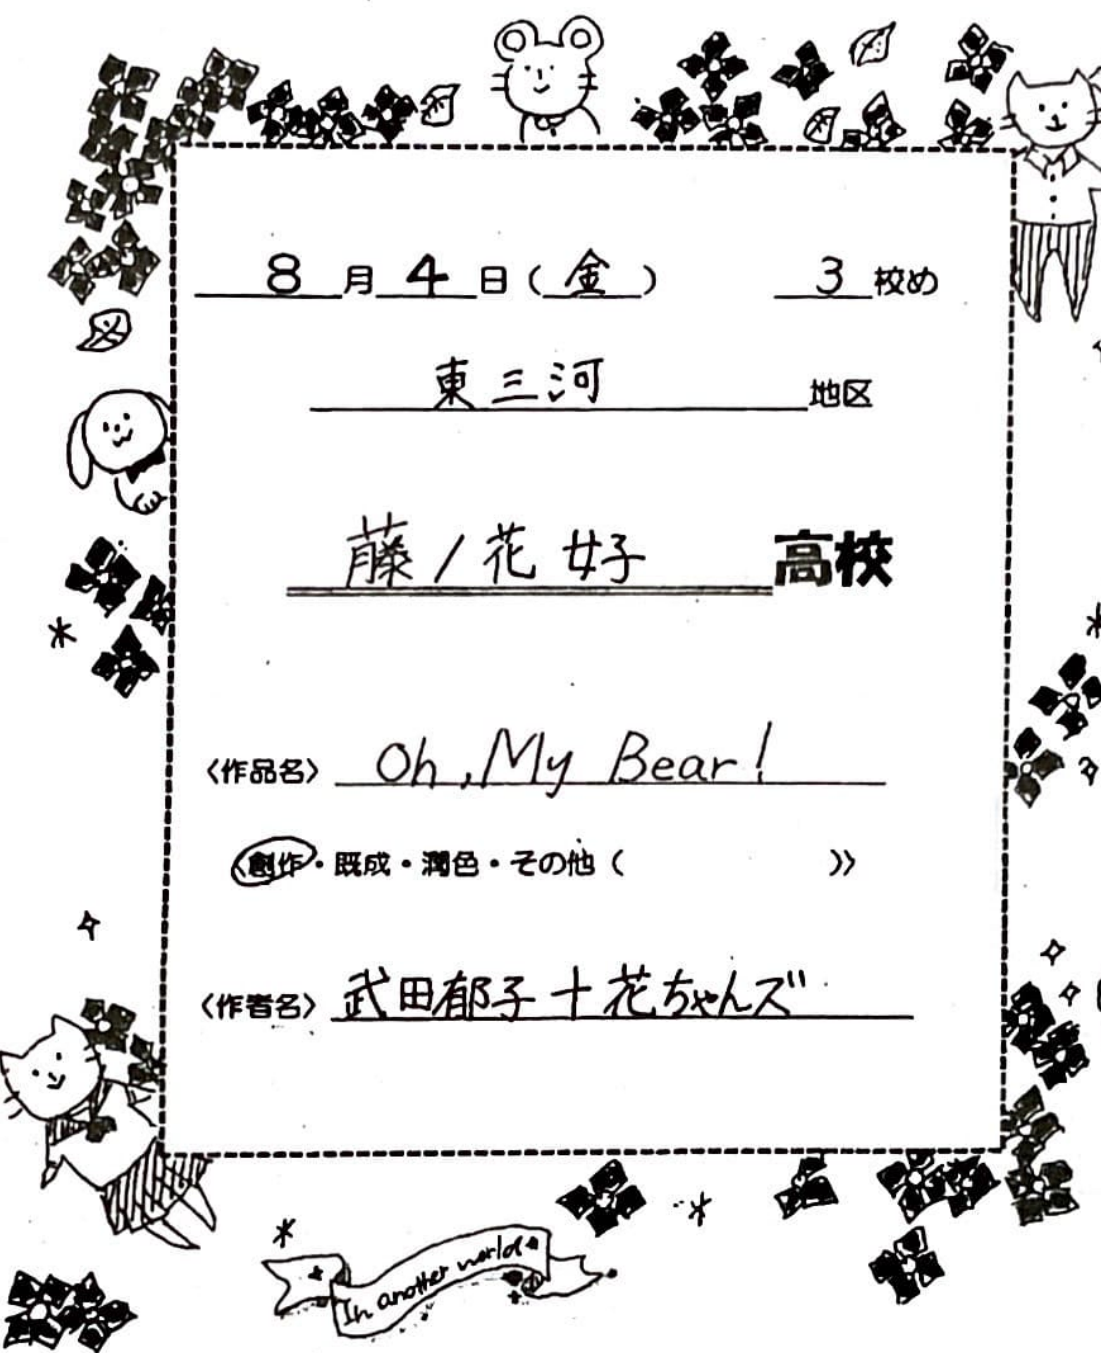 8月4日(金) 3校め
東三河地区
藤ノ花女子高校
〈作品名〉Oh, My Bear!
〈創作・既成・潤色・その他( )〉
〈作者名〉武田郁子+花ちゃんズ
In another world